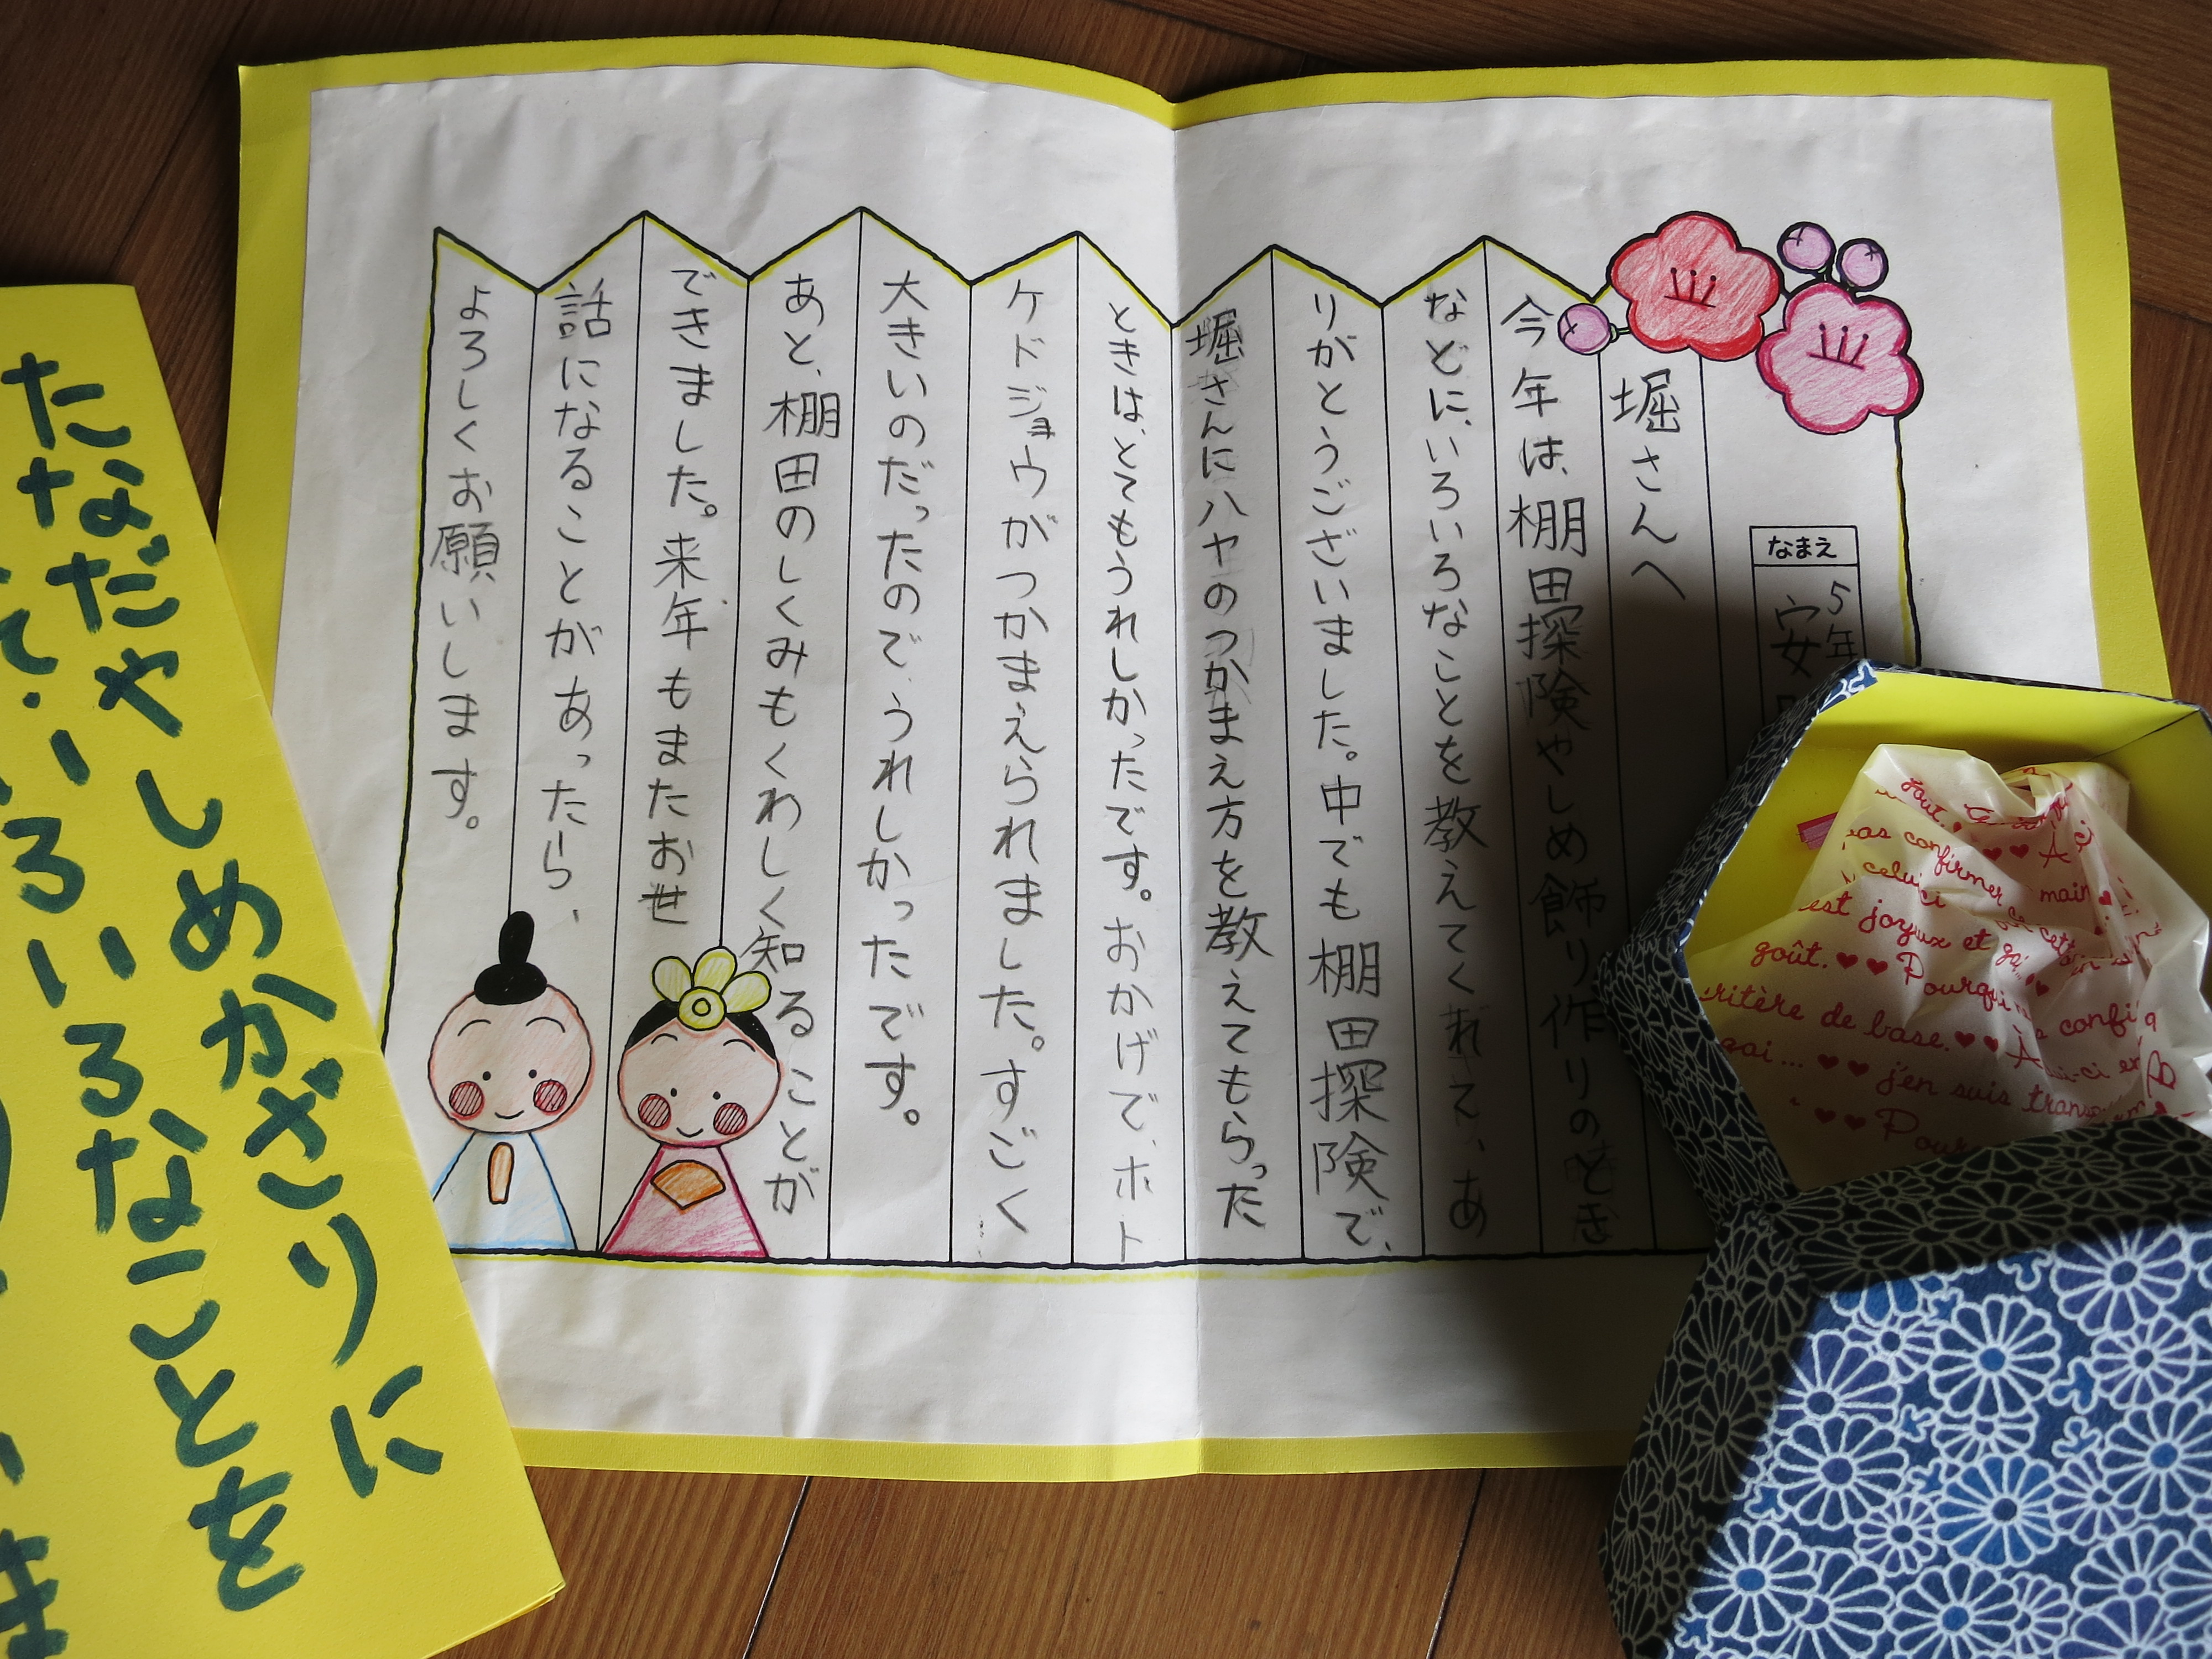 なまえ
5年
安
堀さんへ
今年は、棚田探険やしめ飾り作りのとき
などに、いろいろなことを教えてくれて、あ
りがとうございました。中でも棚田探険で、
堀さんにハヤのつかまえ方を教えてもらった
ときは、とてもうれしかったです。おかげで、ホト
ケドジョウがつかまえられました。すごく
大きいのだったので、うれしかったです。
あと、棚田のしくみもくわしく知ることが
できました。来年もまたお世
話になることがあったら、
よろしくお願いします。
たなだやしめかざりに
いろいろなことを
pas confirmer
celui-ci main
est joyeux et
goût. ♥♥ Pourquoi
critère de base. ♥♥ À
gai... ♥♥ j'en suis
♥♥ Pour